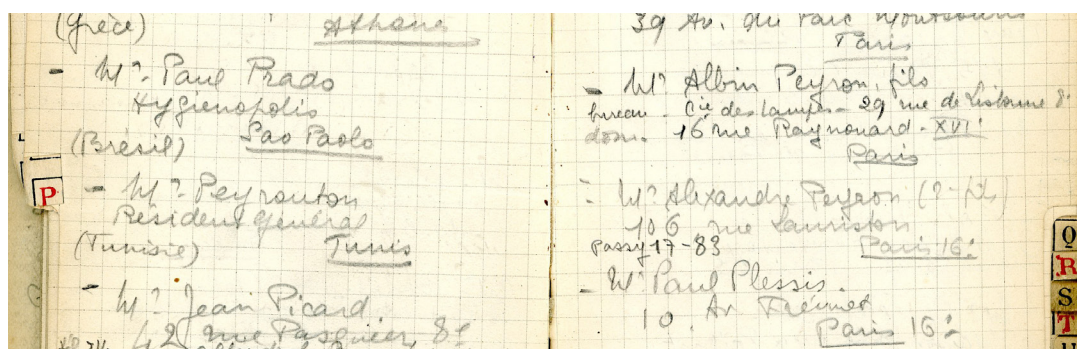 (Grèce) Athène
- Mr. Paul Prado
Hygienopolis
(Brésil) Sao Paolo
P
- Mr. Peyrouton
Résident Général
(Tunisie) Tunis
- Mr. Jean Picard.
42 rue Pasquier, 8e
39 Av. du Parc Montsouris
Paris
- Mr. Albin Peyron, fils
bureau - Cie des Lampes - 29 rue de Lisbonne 8e
dom. 16 rue Raynouard - XVIe
Paris
- Mr. Alexandre Peyron (?-fils)
106, rue Lauriston
Passy 17-83 Paris 16e
- Mr. Paul Plessis.
10, Av Frémiet
Paris 16e
Q
R
S
T
U